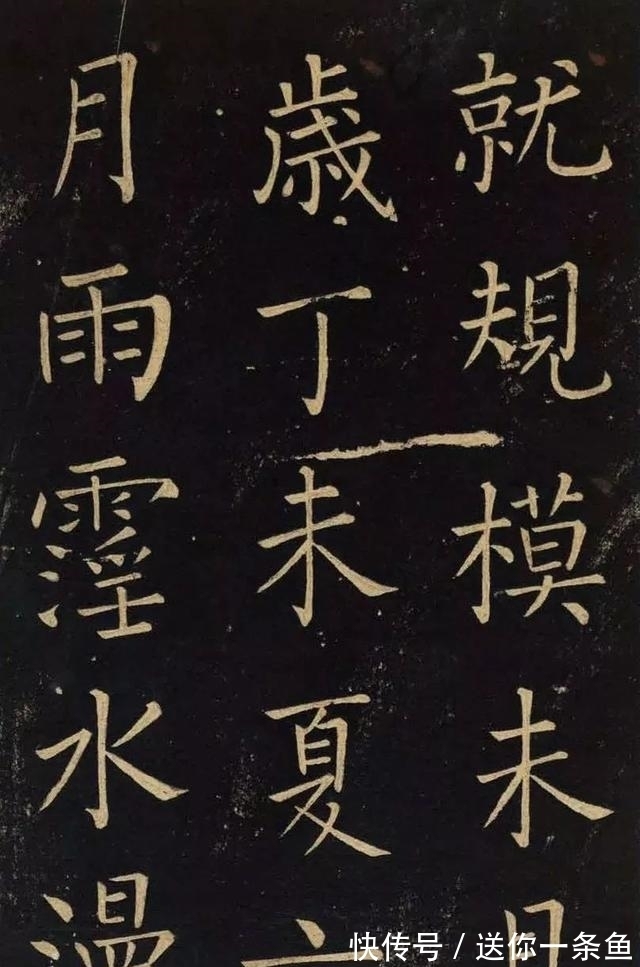 就規模未
歲丁未夏
月雨霪水温
快传号 / 送你一条鱼